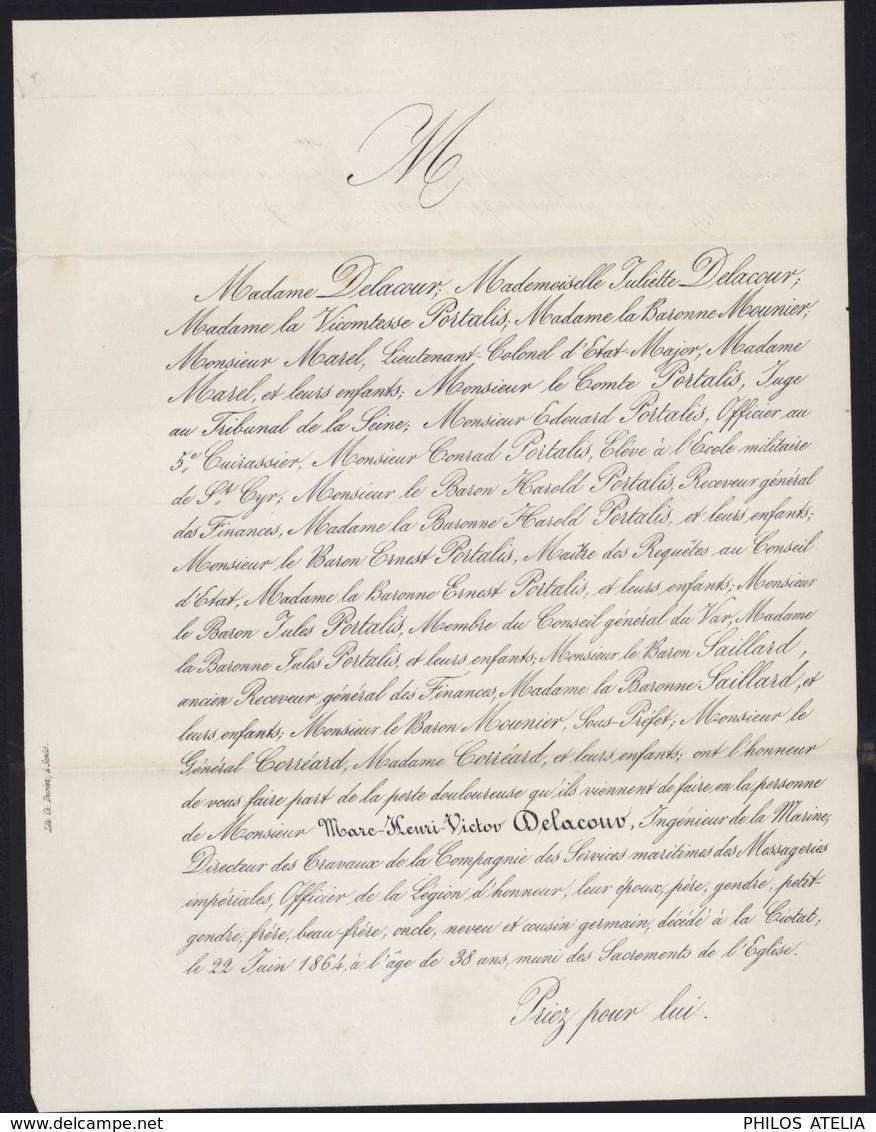 M
Madame Delacour; Mademoiselle Juliette Delacour;
Madame la Vicomtesse Portalis; Madame la Baronne Mounier;
Monsieur Marel, Lieutenant-Colonel d'Etat-Major, Madame
Marel, et leurs enfants; Monsieur le Comte Portalis, Juge
au Tribunal de la Seine; Monsieur Edouard Portalis, Officier au
5e Cuirassier, Monsieur Conrad Portalis, Elève à l'Ecole militaire
de St Cyr; Monsieur le Baron Harold Portalis, Receveur général
des Finances, Madame la Baronne Harold Portalis, et leurs enfants;
Monsieur le Baron Ernest Portalis, Maître des Requêtes au Conseil
d'Etat, Madame la Baronne Ernest Portalis, et leurs enfants; Monsieur
le Baron Jules Portalis, Membre du Conseil général du Var, Madame
la Baronne Jules Portalis, et leurs enfants; Monsieur le Baron Saillard,
ancien Receveur général des Finances, Madame la Baronne Saillard, et
leurs enfants; Monsieur le Baron Mounier, Sous-Préfet; Monsieur le
Général Corréard, Madame Corréard, et leurs enfants; ont l'honneur
de vous faire part de la perte douloureuse qu'ils viennent de faire, en la personne
de Monsieur Marc-Henri-Victor Delacour, Ingénieur de la Marine,
Directeur des Travaux de la Compagnie des Services maritimes des Messageries
impériales, Officier de la Légion d'honneur, leur époux, père, gendre, petit-
gendre, frère, beau-frère, oncle, neveu et cousin germain, décédé à la Ciotat,
le 22 Juin 1864, à l'âge de 38 ans, muni des Sacrements de l'Eglise.
Priez pour lui.
PHILOS ATELIA